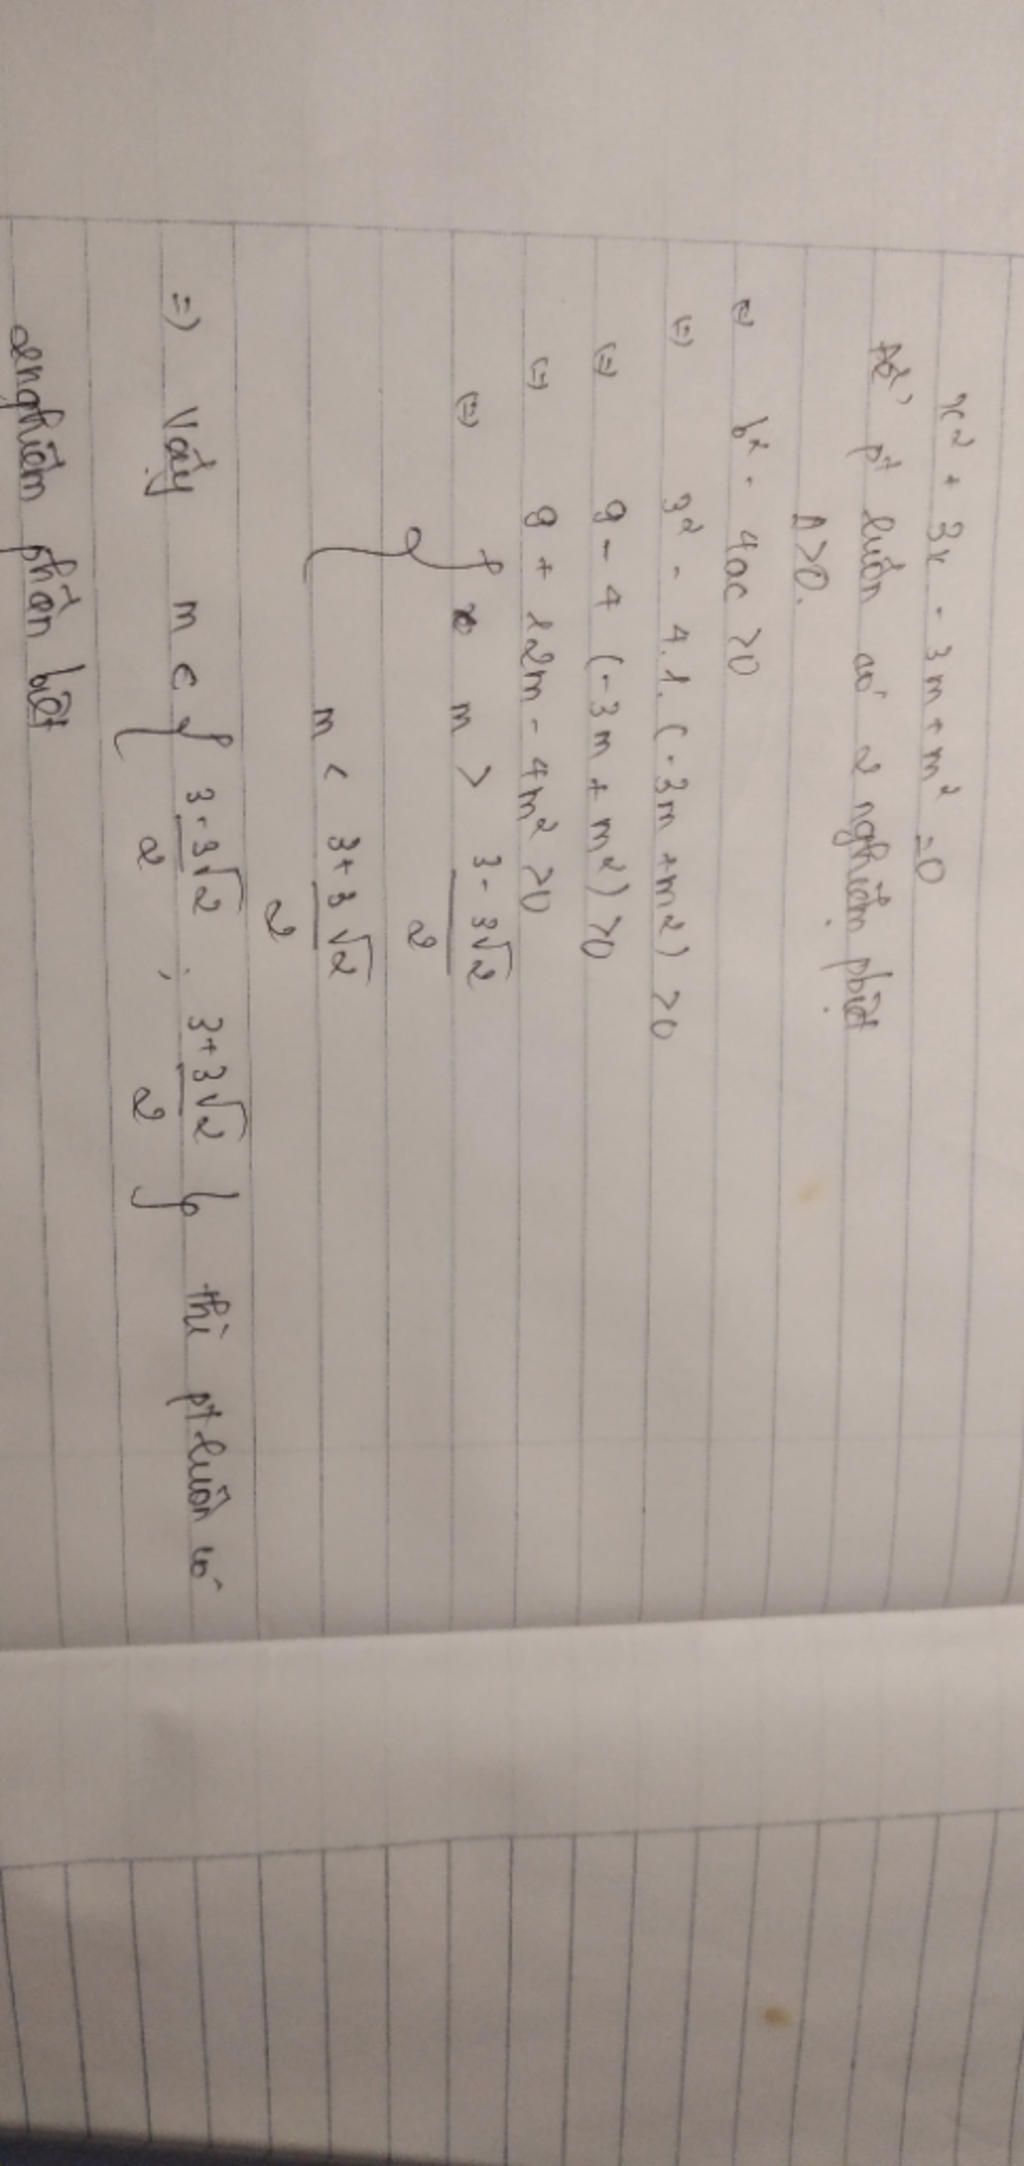 x² + 3x - 3m + m² = 0
Để pt luôn có 2 nghiệm pbiệt
Δ > 0.
(=) b² - 4ac > 0
(=) 3² - 4.1.(-3m + m²) > 0
(=) 9 - 4 (-3m + m²) > 0
(=) 9 + 12m - 4m² > 0
(=) { m > 3 - 3√2 / 2
m < 3 + 3√2 / 2
=) Vậy m ∈ { 3 - 3√2 / 2 ; 3 + 3√2 / 2 } thì pt luôn có
2 nghiệm phân biệt